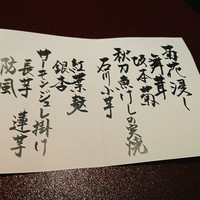 菊花浸し
舞茸
坂本菊
秋刀魚けしの実焼
石川小芋
紅葉麩
銀杏
サーモンジュレ掛け
長芋 蓮芋
防風